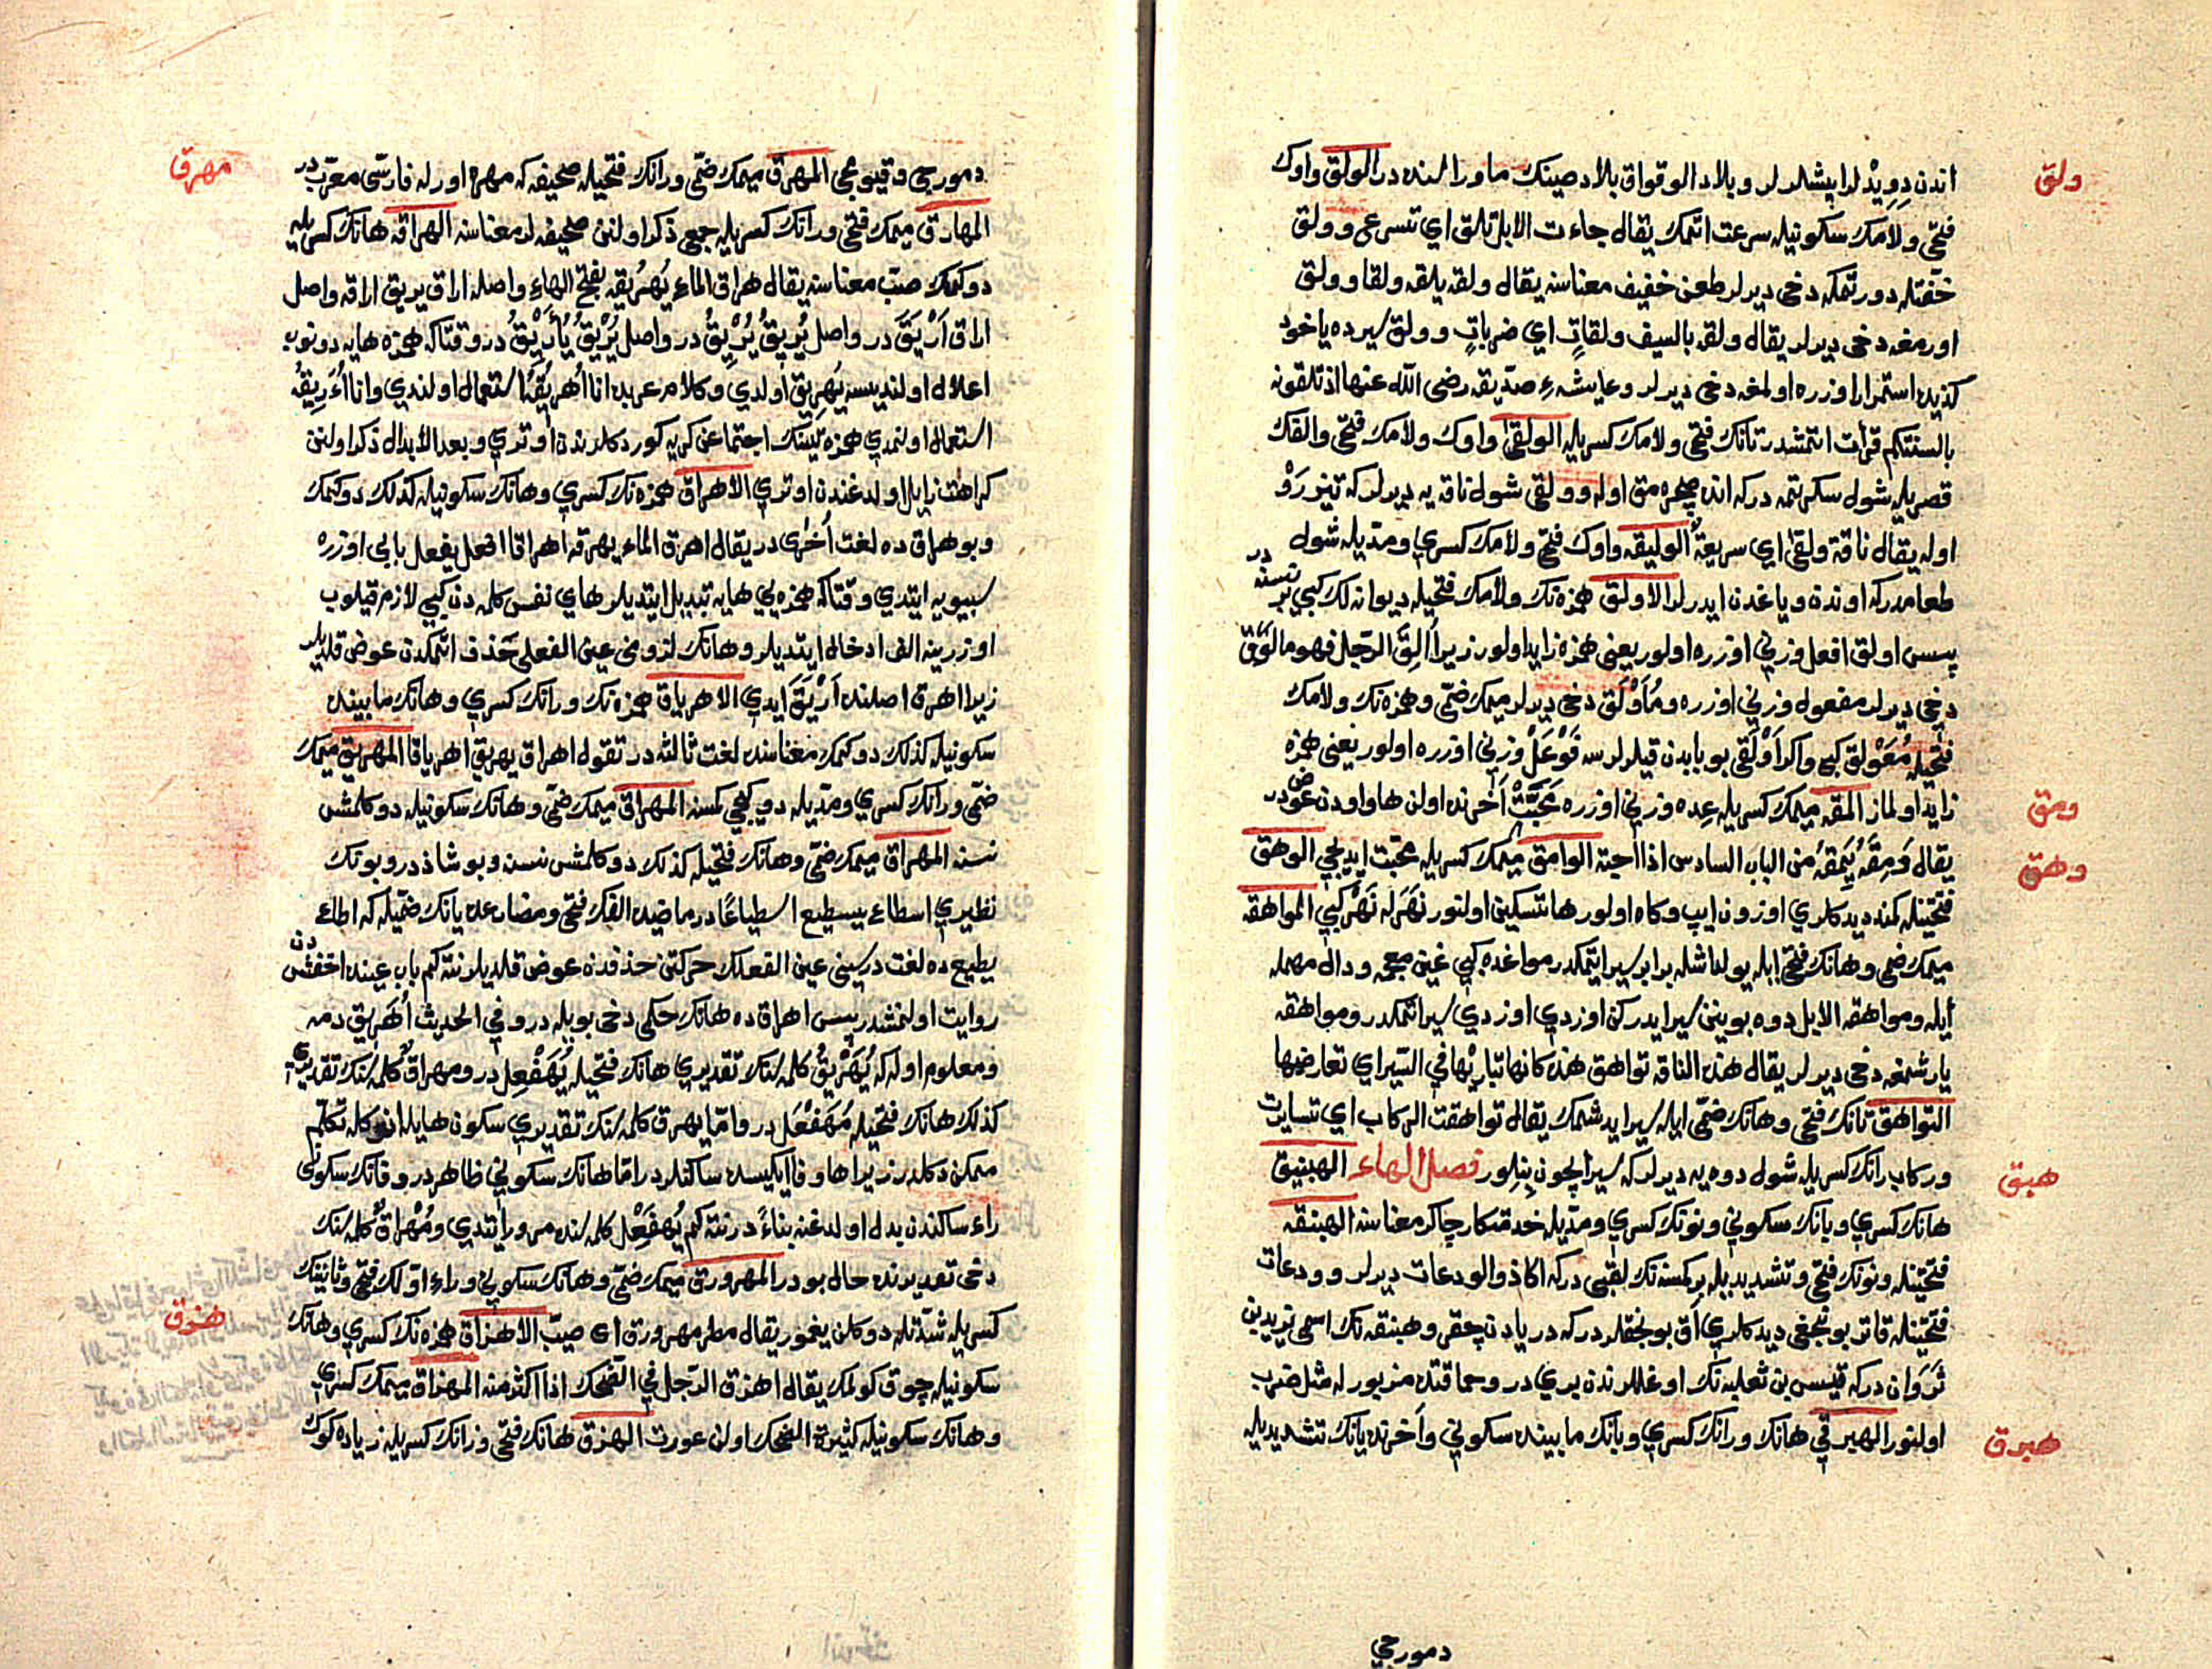 ولق
اندن دویدلر ایشلرلر وبلاد الوقواق بلاد صینك ماوراسنده در الولق واوك
فتحی ولامك سكونیله سرعت اتمك یقال جاءت الابل تلق ای تسرع وولق
خفتله دورتمكه دخی دیرلر طعن خفیف معناسنه یقال ولقه یلقه ولقا وولق
اورمغه دخی دیرلر یقال ولقه بالسیف ولقاتٍ ای ضرباتٍ وولق سیرده یاخود
كذبده استمرار اوزره اولمغه دخی دیرلر وعایشهء صدیقه رضی الله عنها اذ تلقونه
بالسنتكم قرأت اتمشدر تانك فتحی ولامك كسریله الولقی واوك ولامك فتحی والفك
قصریله شول سكرتمه دركه انده صچره مق اوله وولقی شول ناقه یه دیرلر كه تیزرو
اوله یقال ناقة ولقی ای سریعة الولیقه واوك فتحی ولامك كسری ومدیله شول
طعامدركه اوندن ویاغدن ایدرلر الاولق همزه نك ولامك فتحیله دیوانه لك كبی بر نسنه در
پس اولق افعل وزنی اوزره اولور یعنی همزه زاید اولور زیرا اُلِقَ الرجل فهو مالوق
دخی دیرلر مفعول وزنی اوزره ومُاَوْلَق دخی دیرلر میمك ضمی وهمزه نك ولامك
فتحیله مُعَوْلق كبی واكر اَوْلَقی بو بابدن قیلرلرسه فَوْعَلْ وزنی اوزره اولور یعنی همزه
زاید اولماز المقه میمك كسریله عده وزنی اوزره محبّتْ آخرنده اولن ها واودن عوض در
ومق
یقال وَمِقَهُ یَمِقهُ من الباب السادس اذا احبه الوامق میمك كسریله محبت ایدیجی الوهق
وهق
فتحتینله كمند دیدكلری اوزون ایپ وكاه اولور ها تسكین اولنور نَهَر له نَهْر كبی المواهقه
میمك ضمی وهانك فتحی ایله یولداشله برابر سیر ایتمكدر مواغده كبی غین معجمه ودال مهمله
ایله ومواهقه الابل دوه بوینن سیر ایدركن اوزدی اوزدی سیر اتمكدر ومواهقه
یارشمغه دخی دیرلر یقال هذه الناقه تواهق هذه كانها تباریها فی السیر ای تعارضها
التواهق تانك فتحی وهانك ضمی ایله سیر ایدشمك یقال تواهقت الركاب ای تسایرت
وركاب رانك كسریله شول دوه یه دیرلر كه سیر ایچون بنلور فصل الهاء الهبنیق
هبق
هانك كسری وبانك سكونی ونونك كسری ومدیله خدمتكار چاكر معناسنه الهبنقه
فتحتینله ونونك فتحی وتشدیدیله بر كمسنه نك لقبی دركه اكا ذو الودعات دیرلر وودعات
فتحتینله قاتر بونجغی دیدكلری آق بونجقلردركه دریادن چقر وهبنقه نك اسمی یزیدبن
ثَرَوان دركه قیس بن ثعلبه نك اوغللرندن بری در وحماقتده مزبور له مثل ضرب
اولنور الهبرقی هانك ورانك كسری وبانك مابینده سكونی وآخرنده یانك تشدیدیله
هبرق
دمورجی
دمورجی وقیومجی المهرق میمك ضمی ورانك فتحیله صحیفه كه مهره اورله فارسی معرب در
مهرق
المهارق میمك فتحی ورانك كسریله جمعی ذكر اولنن صحیفه لر معناسنه الهراقه هانك كسریله
دوكمك صبّ معناسنه یقال هراق الماء یُهَریقه بفتح الهاء واصله اراق یریق اراقه واصل
اراق اَرْیَقَ در واصل یُریقُ یُرْیِقُ در واصل یُرْیِقُ یُاَرْیِقُ در وقتاكه همزه هایه دونوب
اعلال اولندیسه یُهَریق اولدی وكلام عربده انا اُهَریقه استعمال اولندی وانا اُاَریقه
استعمال اولنمدی همزه تینك اجتماعن كریه كوردكلرندن اوتری وبعد الابدال ذكر اولنن
كراهت زایل اولدغندن اوتری الاهراق همزه نك كسری وهانك سكونیله كذلك دوكمك
وبو هراق ده لغت اخری در یقال اهرق الماء یهرقه اهراقا افعل یفعل بابی اوزره
سیبویه ایتدی وقتاكه همزه یی هایه تبدیل ایتدیلر های نفس كلمه دن كبی لازم قیلوب
اوزرینه الف ادخال ایتدیلر وهانك لزومنی عین الفعلی حذف اتمكدن عوض قلدیلر
زیرا اهرق اصلنده اَرْیَقَ ایدی الاهریاق همزه نك ورانك كسری وهانك مابینده
سكونیله كذلك دوكمك معناسنده لغت ثالثه در تقول اهراق یهریق اهریاقا المهریق میمك
ضمی ورانك كسری ومدیله دوكیجی كمسنه المهراق میمك ضمی وهانك سكونیله دوكلمش
نسنه المهراق میمك ضمی وهانك فتحیله كذلك دوكلمش نسنه وبو شاذدر وبونك
نظیری اسطاع یسطیع اسطیاعًا در ماضیده الفك فتحی ومضارعده یانك ضمیله كه اطاع
یطیع ده لغت در سینی عین الفعلك حركتن حذفدن عوض قلدیلر نته كم باب عینده اخفش دن
روایت اولنمشدر پس اهراق ده هانك حكمی دخی بویله در وفی الحدیث اُهَریق دمه
ومعلوم اوله كه یُهَرْیقُ كلمه سنك تقدیری هانك فتحیله یُهَفْعِل در ومهراق كلمه سنك تقدیری
كذلك هانك فتحیله مُهَفْعَل در واما یهریق كلمه سنك تقدیری سكون هایله انوكله تكلم
ممكن دكلدر زیرا ها وفا ایكیسیده ساكنلردر اما هانك سكونی ظاهردر وفانك سكونی
راء ساكندن بدل اولدغنه بناءً در نته كم یُهْفَعْل كلمه سنده مرور ایتدی ومُهْراقٌ كلمه سنك
دخی تقدیرنده حال بودر المهرورق میمك ضمی وهانك سكونی وراء اولك فتحی وثانینك
كسریله شدتله دوكلن یغمور یقال مطر مهرورق ای صیّب الاهزاق همزه نك كسری وهانك
هزق
سكونیله چوق كولمك یقال اهزق الرجل فی الضحك اذا اكثر منه المهزاق میمك كسری
وهانك سكونیله كثیرة الضحك اولن عورت الهزق هانك فتحی وزانك كسریله زیاده كوك